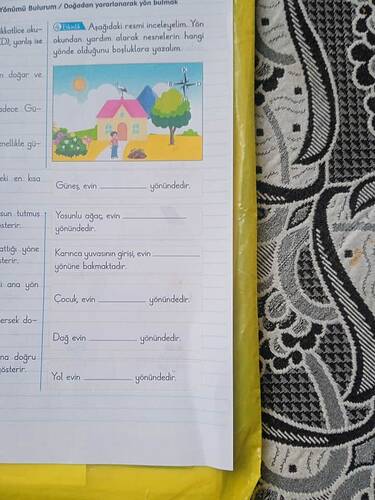 Yönümü Bulurum / Doğadan yararlanarak yön bulmak
kkatlice oku-
D), yanlış ise
n doğar ve
adece Gü-
enellikle gü-
eki en kısa
sun tutmuş
sterir.
attığı yöne
sterir.
i ana yön
ersek do-
na doğru
gösterir.
Etkinlik Aşağıdaki resmi inceleyelim. Yön
okundan yardım alarak nesnelerin hangi
yönde olduğunu boşluklara yazalım.
K
B
D
Güneş, evin ____________ yönündedir.
Yosunlu ağaç, evin ____________
yönündedir.
Karınca yuvasının girişi, evin ____________
yönüne bakmaktadır.
Çocuk, evin ____________ yönündedir.
Dağ evin ____________ yönündedir.
Yol evin ____________ yönündedir.